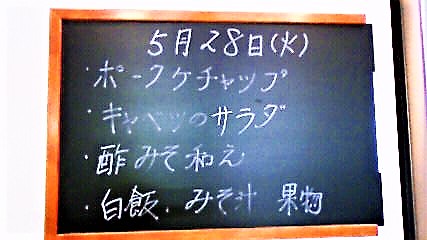 5月28日(火)
・ポークケチャップ
・キャベツのサラダ
・酢みそ和え
・白飯、みそ汁 果物